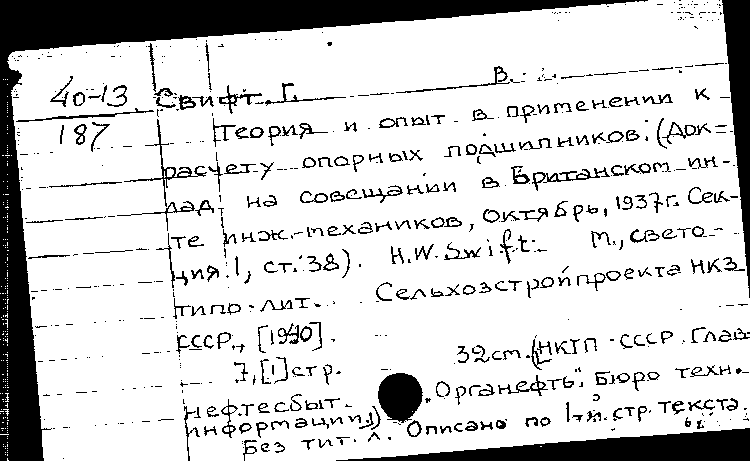 В.
40-13 Свифт. Г.
187
Теория и опыт в применении к
расчету опорных подшипников: (Док=
лад на совещании в Британском ин-
те инж.-механиков, октябрь, 1937г. Сек-
ция 1, ст. 38). H.W. Swift. М., свето-
типо-лит. Сельхозстройпроекта НКЗ
СССР, [1940].
7, [1] стр. 32см. (НКТП-СССР. Глав-
нефтесбыт. "Органефть". Бюро техн.
информации)
Без тит. л. Описано по 1-й стр. текста.